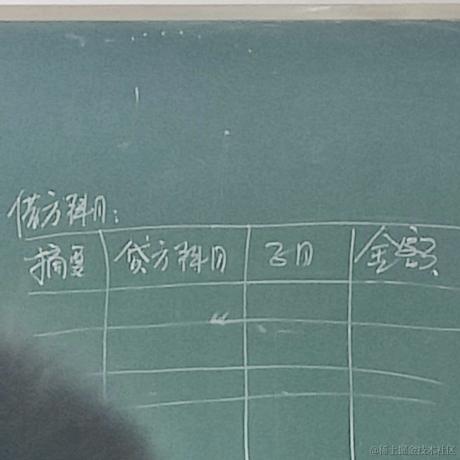 借方科目：
摘要 贷方科目 子目 金额
@稀土掘金技术社区